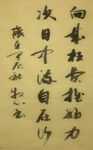 向来枉费推移力
此日中流自在行